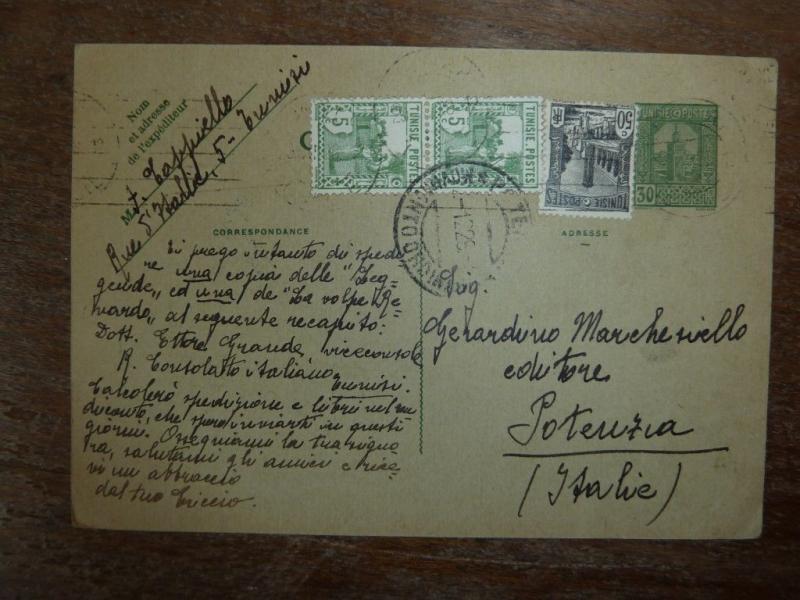 Nom
et adresse
de l'expéditeur
M
Cappiello
Rue d'Italie, 5 - Tunisi
5
TUNISIE. POSTES
5
TUNISIE. POSTES
50
TUNISIE POSTES
TUNISIE POSTES
30
CORRESPONDANCE
ADRESSE
Ti prego intanto di spedir
ne una copia delle "Leg-
gende„ ed una de "La volpe Re-
nardo„ al seguente recapito:
Dott. Ettore Grande, viceconsole
R. Consolato italiano
Tunisi.
Calcolerò spedizione e libri nel
diconto, che spero inviarti in questi
giorni. Ossequiami la tua signo
ra, salutami gli amici e rice-
vi un abbraccio
dal tuo Ciccio.
Sig.
Gerardino Marchesiello
editore
Potenza
(Italie)